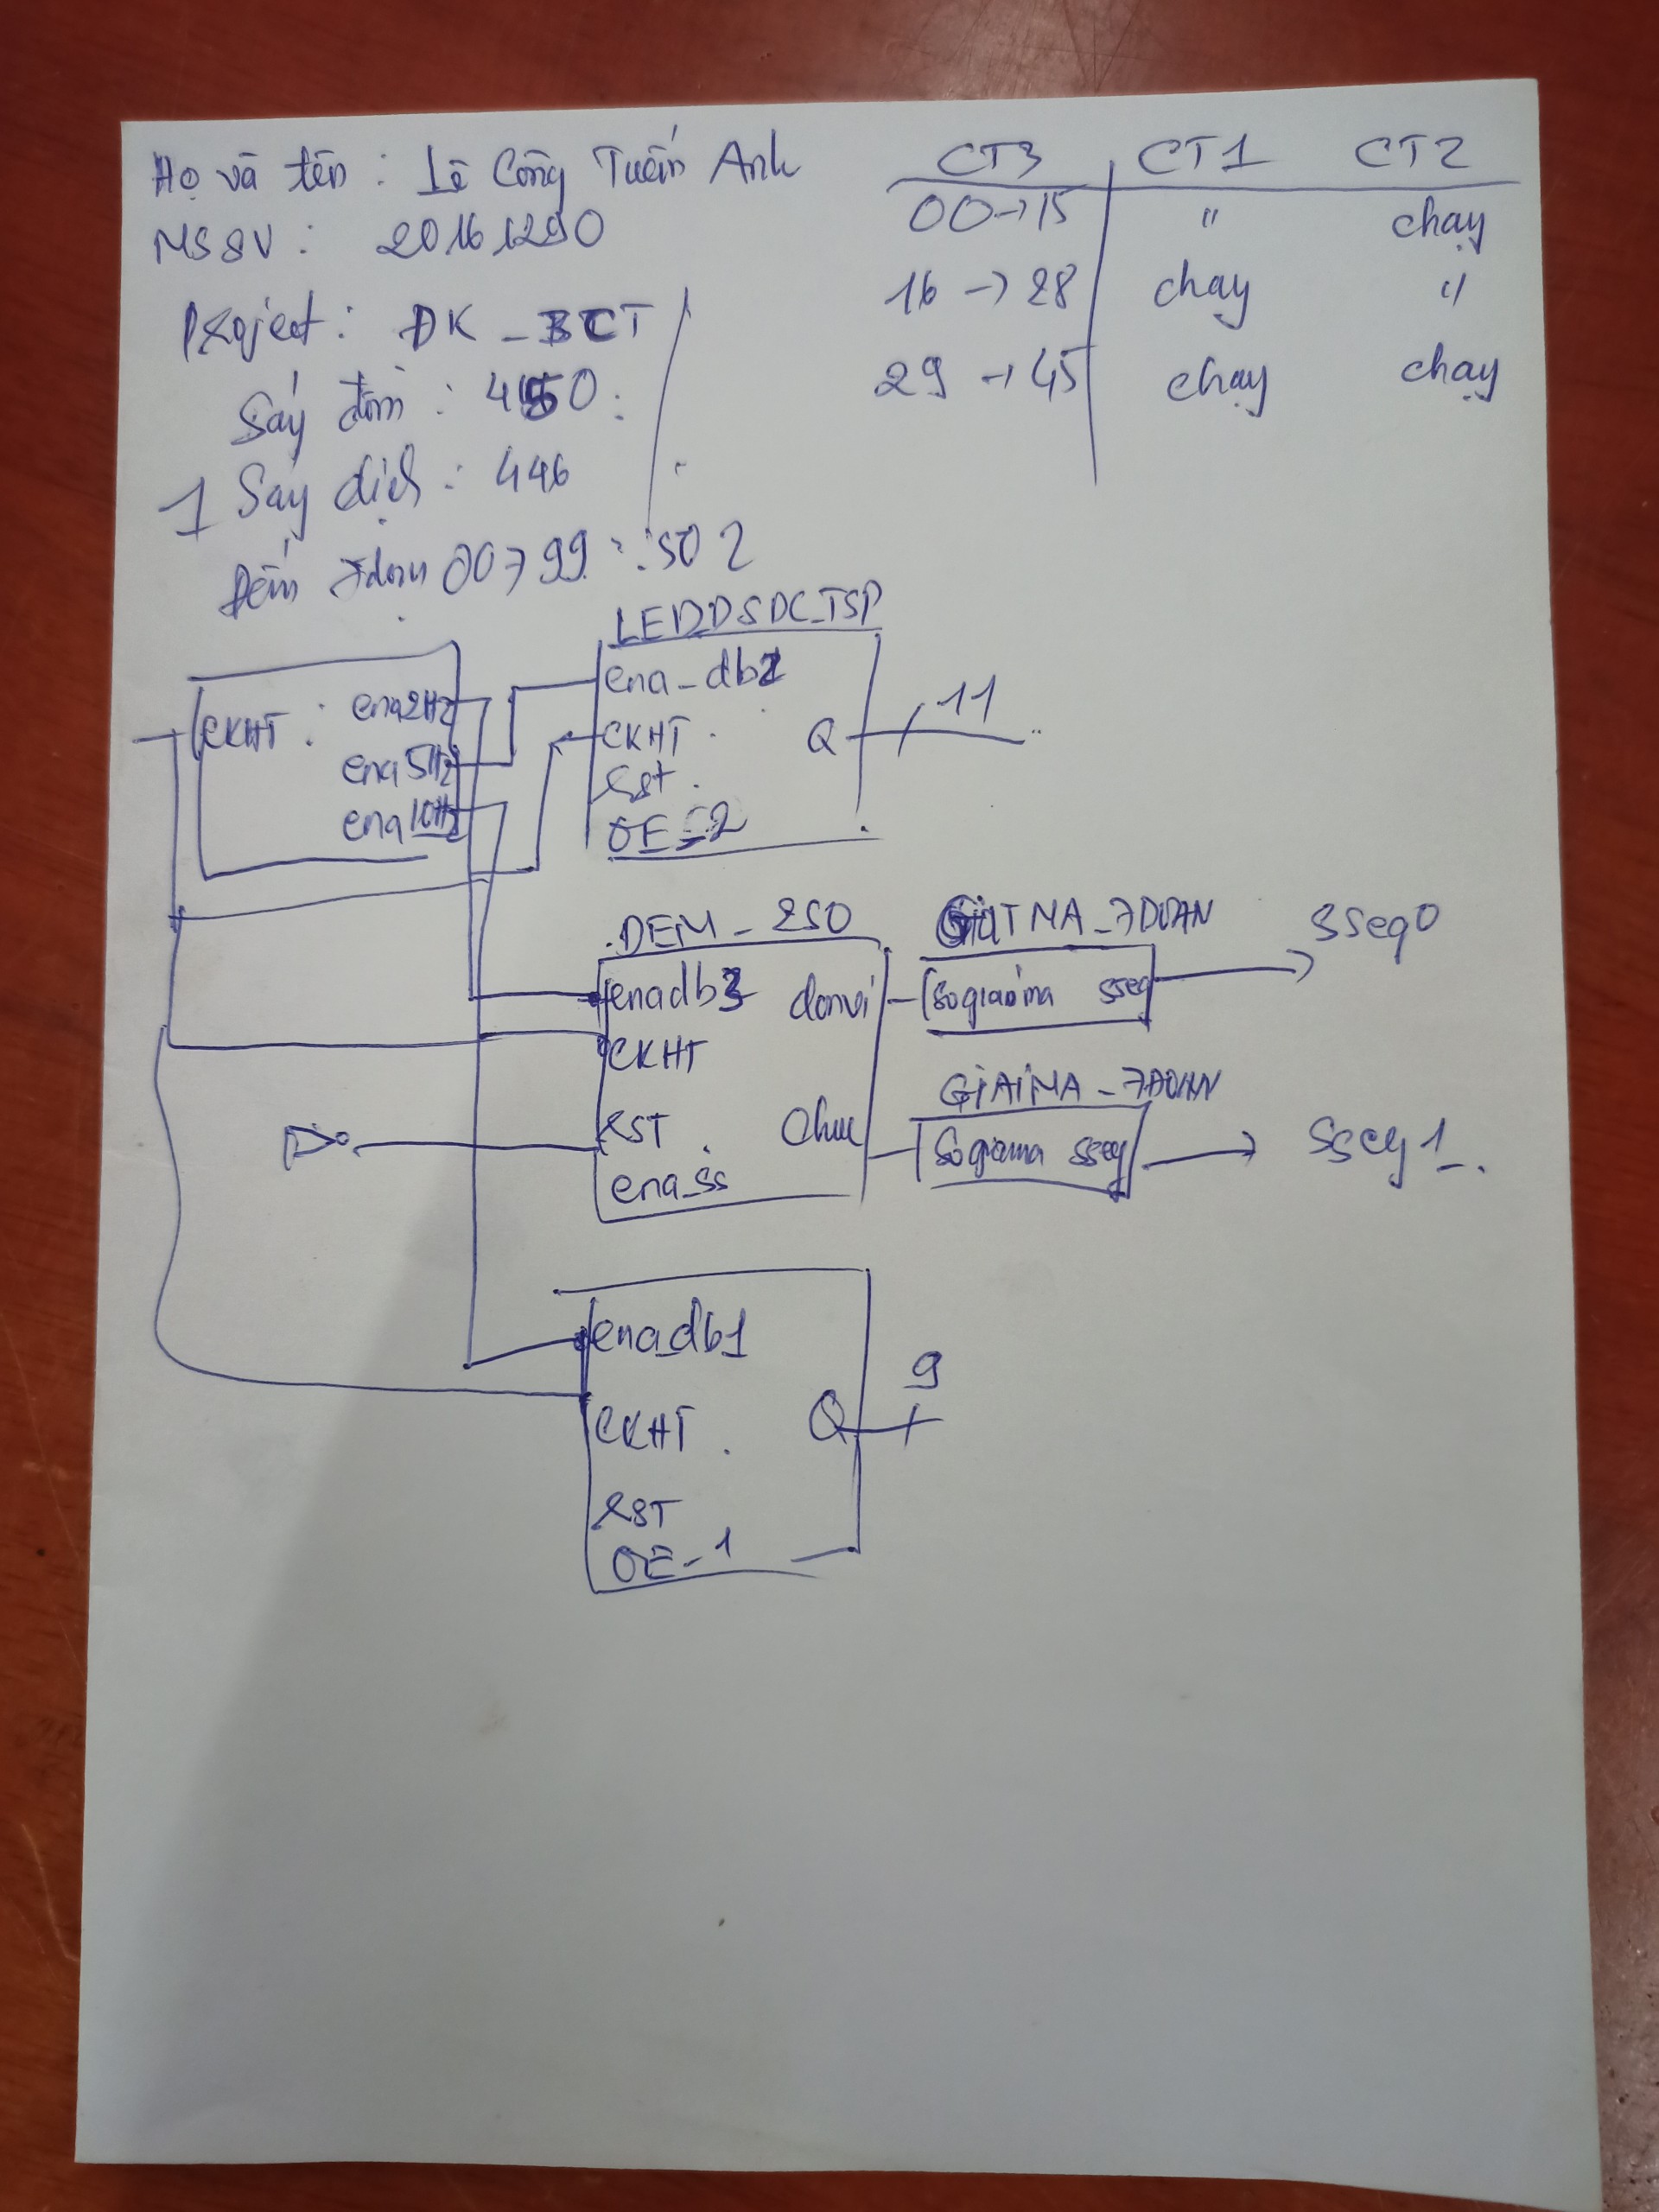 Họ và tên : Lê Công Tuấn Anh
MSSV : 20161290
Project : ĐK_BCT
Sáy đơn : 4450 :
1 Sáy dịch : 446
Đếm 7đoạn 00→99 : 502
CT3 CT1 CT2
00→15 " chạy
16→28 chạy "
29→45 chạy chạy
CKHT
ena2Hz
ena5Hz
ena10Hz
LED_DSDC_TSP
ena_db2
CKHT
Rst
OE_2
Q
11
DEM_250
enadb3
CKHT
RST
ena_ss
donvi
Chuc
GIAIMA_7DOAN
Sogiaima sseg
Sseg0
GIAIMA_7DOAN
Sogiaima sseg
Sseg1
ena_db1
CKHT
RST
OE_1
Q
9